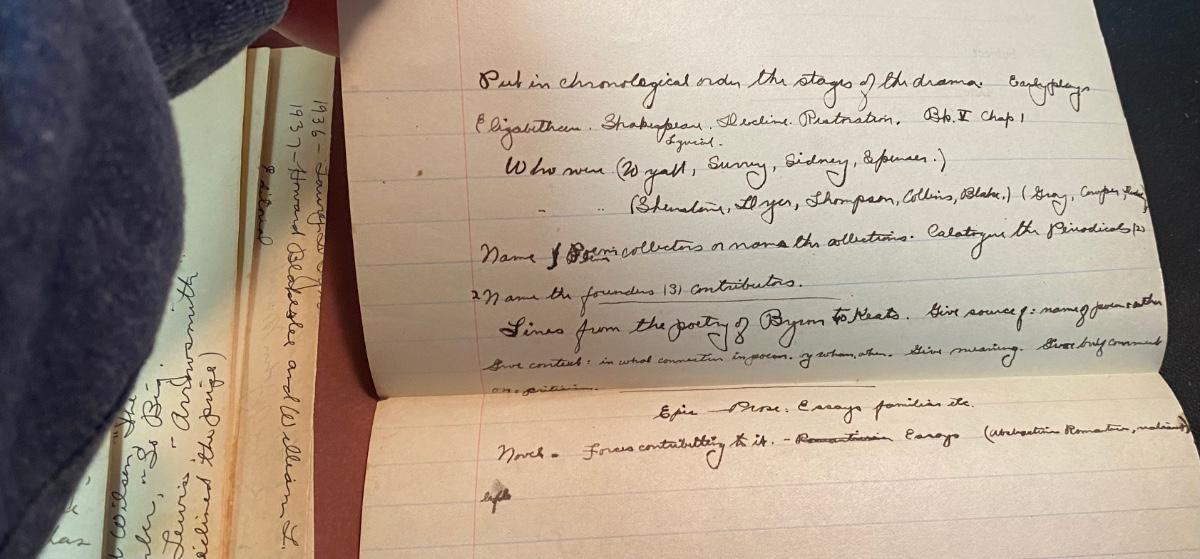 Put in chronological order the stages of the drama. Early plays
Elizabethan. Shakespeare. Decline. Restoration. Bk. V Chap 1
Lyrical.
Who were (Wyatt, Surrey, Sidney, Spenser.)
" " (Shenstone, Dyer, Thompson, Collins, Blake.) (Gray, Cowper,
Name Poem collectors or name the collections. Catalogue the Periodicals (2)
2 Name the founders (3) contributors.
Lines from the poetry of Byron to Keats. Give source of: name of poem + author
Give context: in what connection in poem. by whom, when. Give meaning. Give brief comment
Epic Prose: Essays families etc.
Novel - Forces contributing to it. - Essays
1936 -
1937 - Howard Blakeslee and William L.
Wilson, The
"So Big".
Lewis, - "Arrowsmith"
declined the prize)